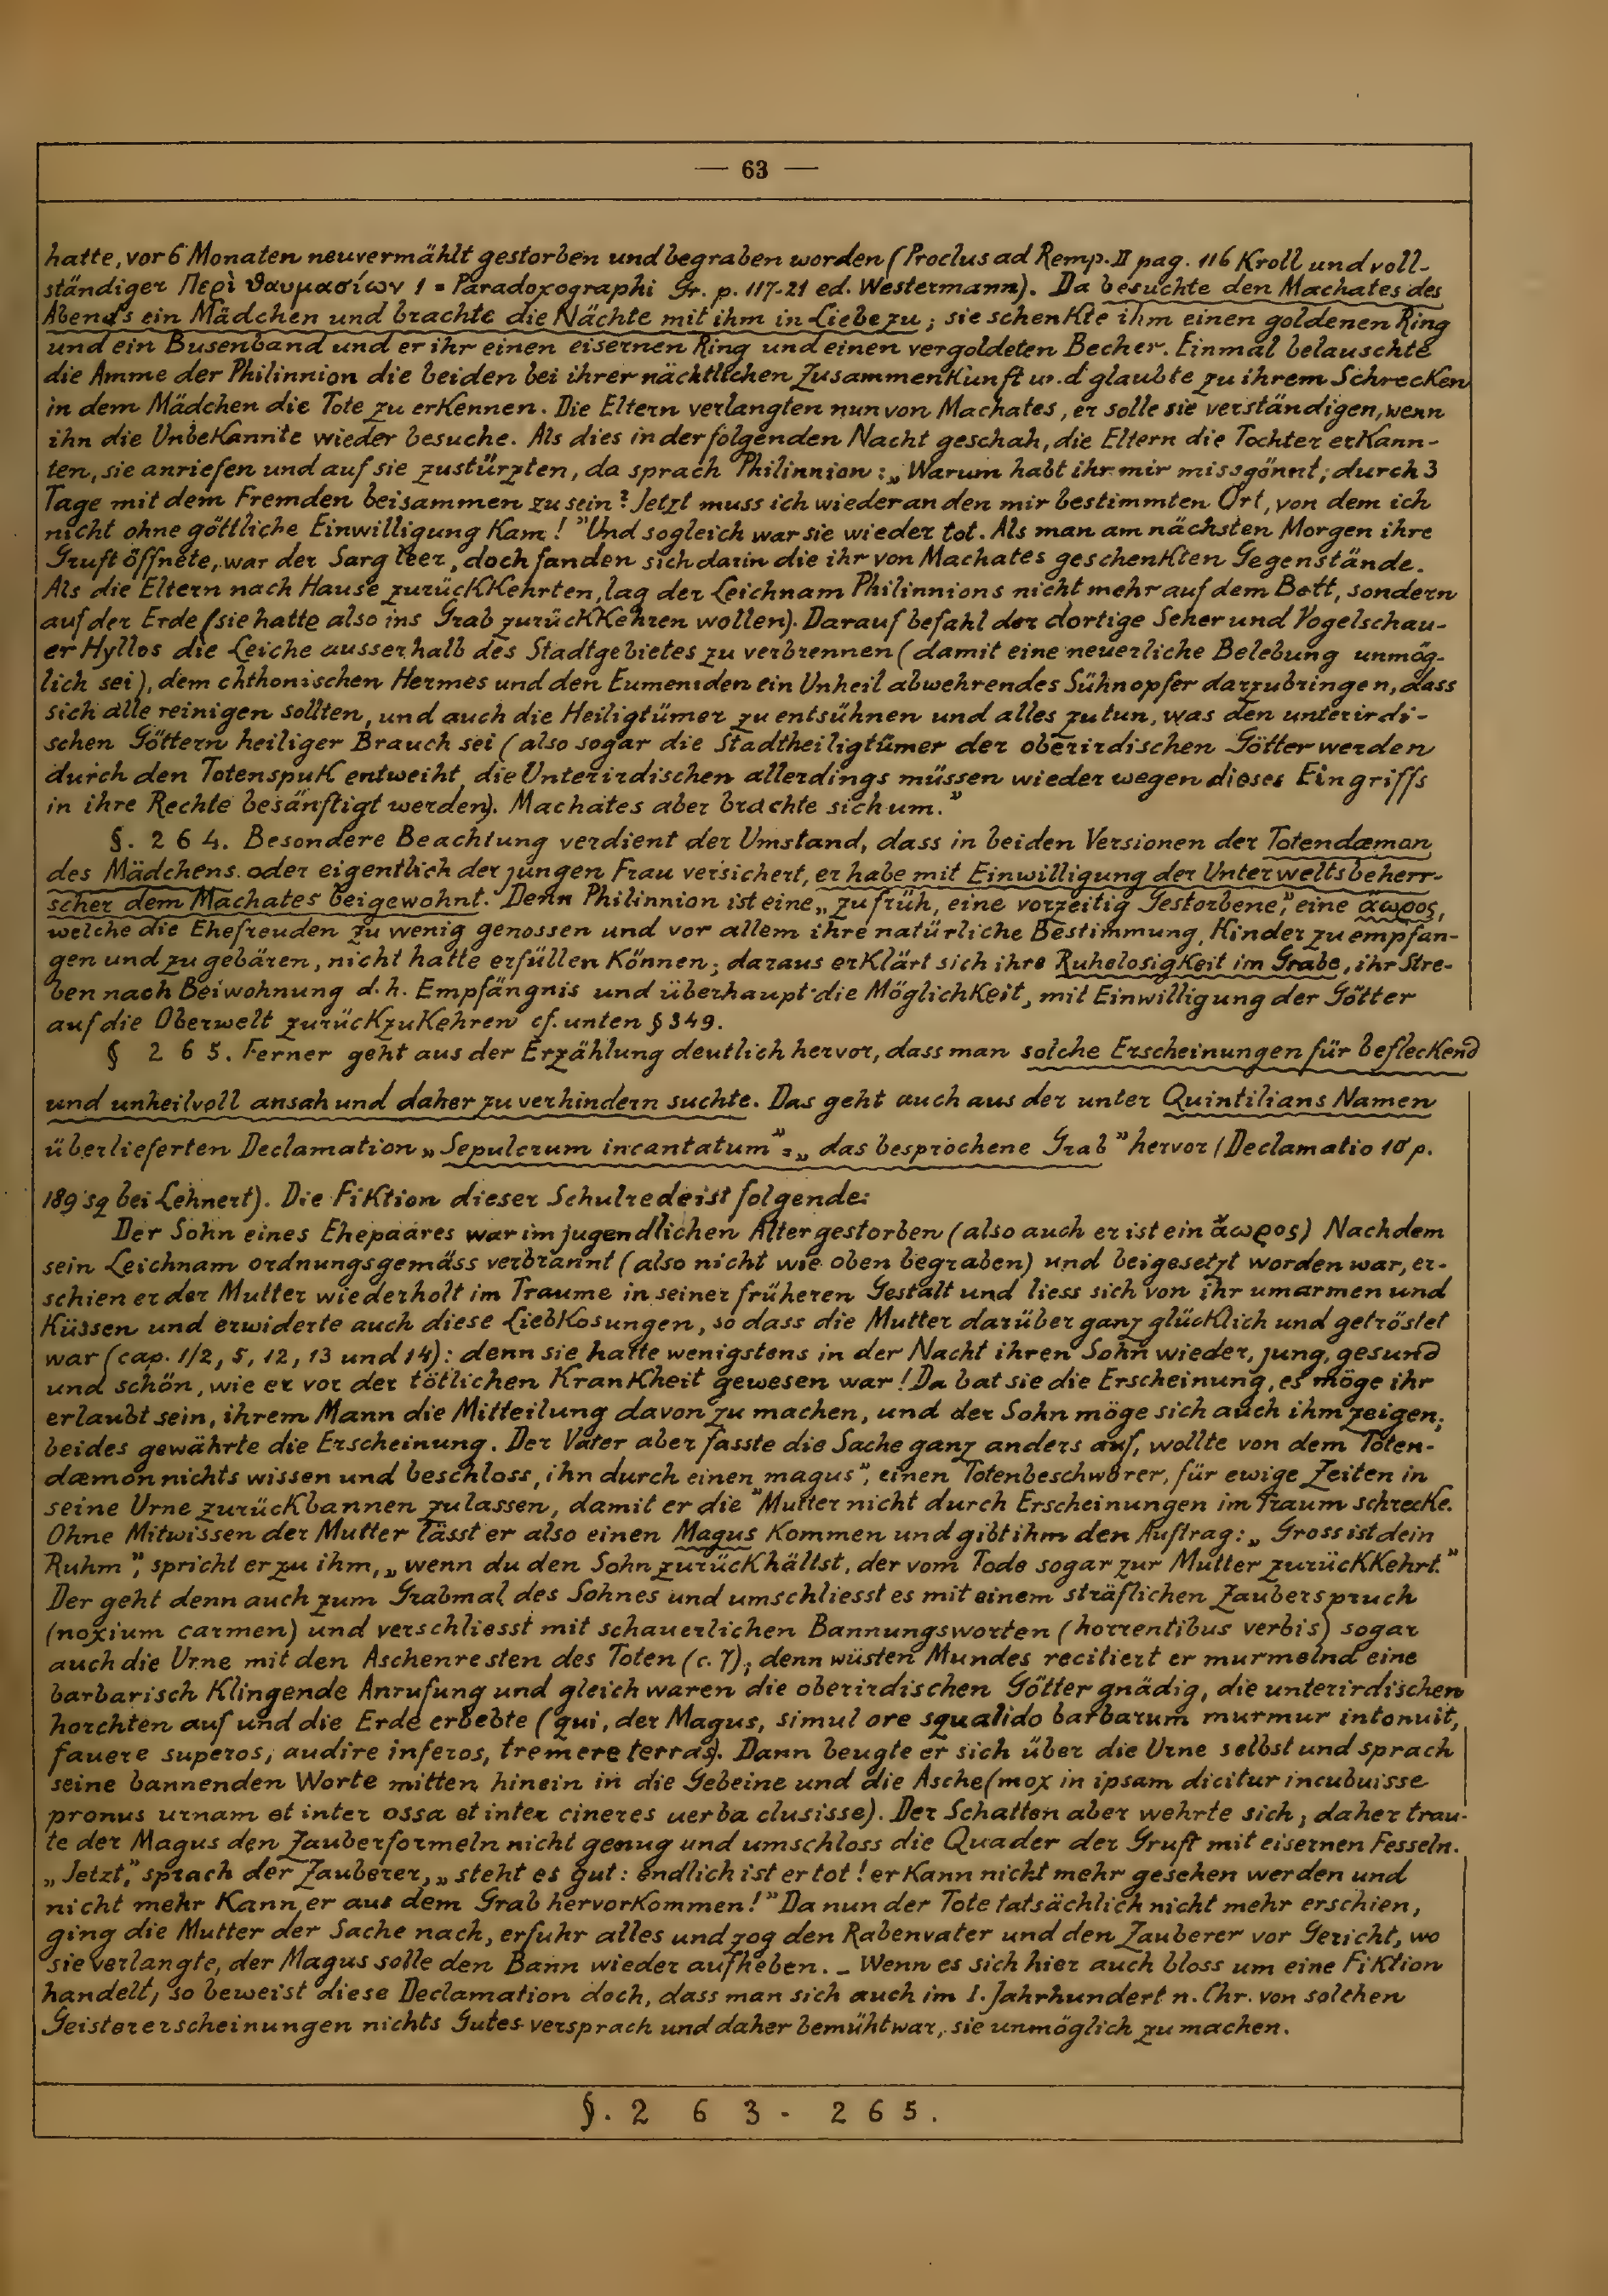 — 63 —
hatte, vor 6 Monaten neuvermählt gestorben und begraben worden (Proclus ad Remp. II pag. 116 Kroll und voll-
ständiger Περὶ θαυμασίων 1 = Paradoxographi Gr. p. 117-21 ed. Westermann). Da besuchte den Machates des
Abends ein Mädchen und brachte die Nächte mit ihm in Liebe zu; sie schenkte ihm einen goldenen Ring
und ein Busenband und er ihr einen eisernen Ring und einen vergoldeten Becher. Einmal belauschte
die Amme der Philinnion die beiden bei ihrer nächtlichen Zusammenkunft u.d glaubte zu ihrem Schrecken
in dem Mädchen die Tote zu erkennen. Die Eltern verlangten nun von Machates, er solle sie verständigen, wenn
ihn die Unbekannte wieder besuche. Als dies in der folgenden Nacht geschah, die Eltern die Tochter erkann-
ten, sie anriefen und auf sie zustürzten, da sprach Philinnion: „Warum habt ihr mir missgönnt, durch 3
Tage mit dem Fremden beisammen zu sein? Jetzt muss ich wieder an den mir bestimmten Ort, von dem ich
nicht ohne göttliche Einwilligung kam!" Und sogleich war sie wieder tot. Als man am nächsten Morgen ihre
Gruft öffnete, war der Sarg leer, doch fanden sich darin die ihr von Machates geschenkten Gegenstände.
Als die Eltern nach Hause zurückkehrten, lag der Leichnam Philinnions nicht mehr auf dem Bett, sondern
auf der Erde (sie hatte also ins Grab zurückkehren wollen). Darauf befahl der dortige Seher und Vogelschau-
er Hyllos die Leiche ausserhalb des Stadtgebietes zu verbrennen (damit eine neuerliche Belebung unmög-
lich sei), dem chthonischen Hermes und den Eumeniden ein Unheil abwehrendes Sühnopfer darzubringen, dass
sich alle reinigen sollten, und auch die Heiligtümer zu entsühnen und alles zu tun, was den unterirdi-
schen Göttern heiliger Brauch sei (also sogar die Stadtheiligtümer der oberirdischen Götter werden
durch den Totenspuk entweiht, die Unterirdischen allerdings müssen wieder wegen dieses Eingriffs
in ihre Rechte besänftigt werden). Machates aber brachte sich um."
§. 264. Besondere Beachtung verdient der Umstand, dass in beiden Versionen der Totendæmon
des Mädchens oder eigentlich der jungen Frau versichert, er habe mit Einwilligung der Unterweltsbeherr-
scher dem Machates beigewohnt. Denn Philinnion ist eine „zu früh, eine vorzeitig Gestorbene", eine ἄωρος,
welche die Ehefreuden zu wenig genossen und vor allem ihre natürliche Bestimmung, Kinder zu empfan-
gen und zu gebären, nicht hatte erfüllen können; daraus erklärt sich ihre Ruhelosigkeit im Grabe, ihr Stre-
ben nach Beiwohnung d.h. Empfängnis und überhaupt die Möglichkeit, mit Einwilligung der Götter
auf die Oberwelt zurückzukehren cf. unten § 349.
§ 265. Ferner geht aus der Erzählung deutlich hervor, dass man solche Erscheinungen für befleckend
und unheilvoll ansah und daher zu verhindern suchte. Das geht auch aus der unter Quintilians Namen
überlieferten Declamation „Sepulcrum incantatum" = „das besprochene Grab" hervor (Declamatio 10 p.
189 sq bei Lehnert). Die Fiktion dieser Schulrede ist folgende:
Der Sohn eines Ehepaares war im jugendlichen Alter gestorben (also auch er ist ein ἄωρος) Nachdem
sein Leichnam ordnungsgemäss verbrannt (also nicht wie oben begraben) und beigesetzt worden war, er-
schien er der Mutter wiederholt im Traume in seiner früheren Gestalt und liess sich von ihr umarmen und
küssen und erwiderte auch diese Liebkosungen, so dass die Mutter darüber ganz glücklich und getröstet
war (cap. 1/2, 5, 12, 13 und 14): denn sie hatte wenigstens in der Nacht ihren Sohn wieder, jung, gesund
und schön, wie er vor der tötlichen Krankheit gewesen war! Da bat sie die Erscheinung, es möge ihr
erlaubt sein, ihrem Mann die Mitteilung davon zu machen, und der Sohn möge sich auch ihm zeigen;
beides gewährte die Erscheinung. Der Vater aber fasste die Sache ganz anders auf, wollte von dem Toten-
dæmon nichts wissen und beschloss, ihn durch einen magus", einen Totenbeschwörer, für ewige Zeiten in
seine Urne zurückbannen zu lassen, damit er die "Mutter nicht durch Erscheinungen im Traum schrecke.
Ohne Mitwissen der Mutter lässt er also einen Magus kommen und gibt ihm den Auftrag: „Gross ist dein
Ruhm", spricht er zu ihm, „wenn du den Sohn zurückhältst, der vom Tode sogar zur Mutter zurückkehrt."
Der geht denn auch zum Grabmal des Sohnes und umschliesst es mit einem sträflichen Zauberspruch
(noxium carmen) und verschliesst mit schauerlichen Bannungsworten (horrentibus verbis) sogar
auch die Urne mit den Aschenresten des Toten (c. 7); denn wüsten Mundes recitiert er murmelnd eine
barbarisch klingende Anrufung und gleich waren die oberirdischen Götter gnädig, die unterirdischen
horchten auf und die Erde erbebte (qui, der Magus, simul ore squalido barbarum murmur intonuit,
fauere superos, audire inferos, tremere terras). Dann beugte er sich über die Urne selbst und sprach
seine bannenden Worte mitten hinein in die Gebeine und die Asche (mox in ipsam dicitur incubuisse
pronus urnam et inter ossa et inter cineres uerba clusisse). Der Schatten aber wehrte sich; daher trau-
te der Magus den Zauberformeln nicht genug und umschloss die Quader der Gruft mit eisernen Fesseln.
„Jetzt," sprach der Zauberer, „steht es gut: endlich ist er tot! er kann nicht mehr gesehen werden und
nicht mehr kann er aus dem Grab hervorkommen!" Da nun der Tote tatsächlich nicht mehr erschien,
ging die Mutter der Sache nach, erfuhr alles und zog den Rabenvater und den Zauberer vor Gericht, wo
sie verlangte, der Magus solle den Bann wieder aufheben. – Wenn es sich hier auch bloss um eine Fiktion
handelt, so beweist diese Declamation doch, dass man sich auch im 1. Jahrhundert n. Chr. von solchen
Geistererscheinungen nichts Gutes versprach und daher bemüht war, sie unmöglich zu machen.
§. 263 - 265.